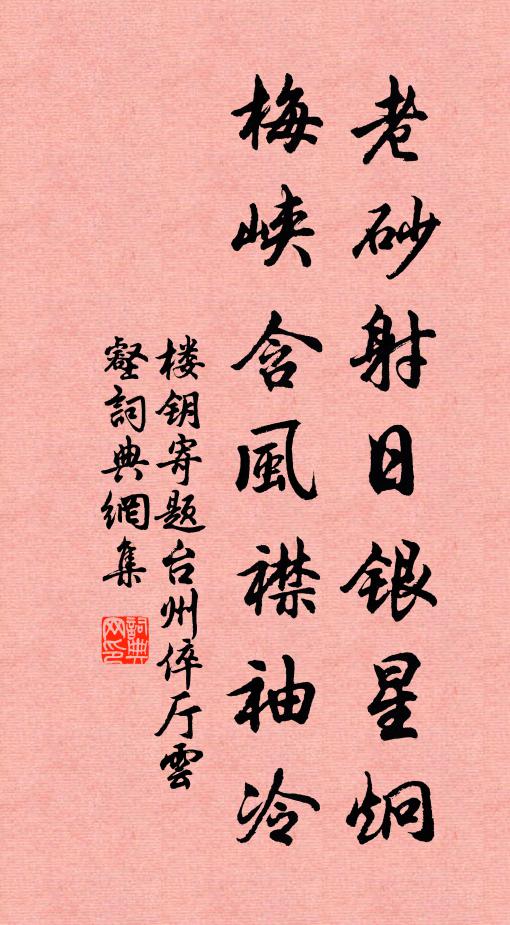 老砂射日银星炯
梅峡含風襟袖冷
楼钥寄题台州倅厅雲
壑詞典網集
詞典网印